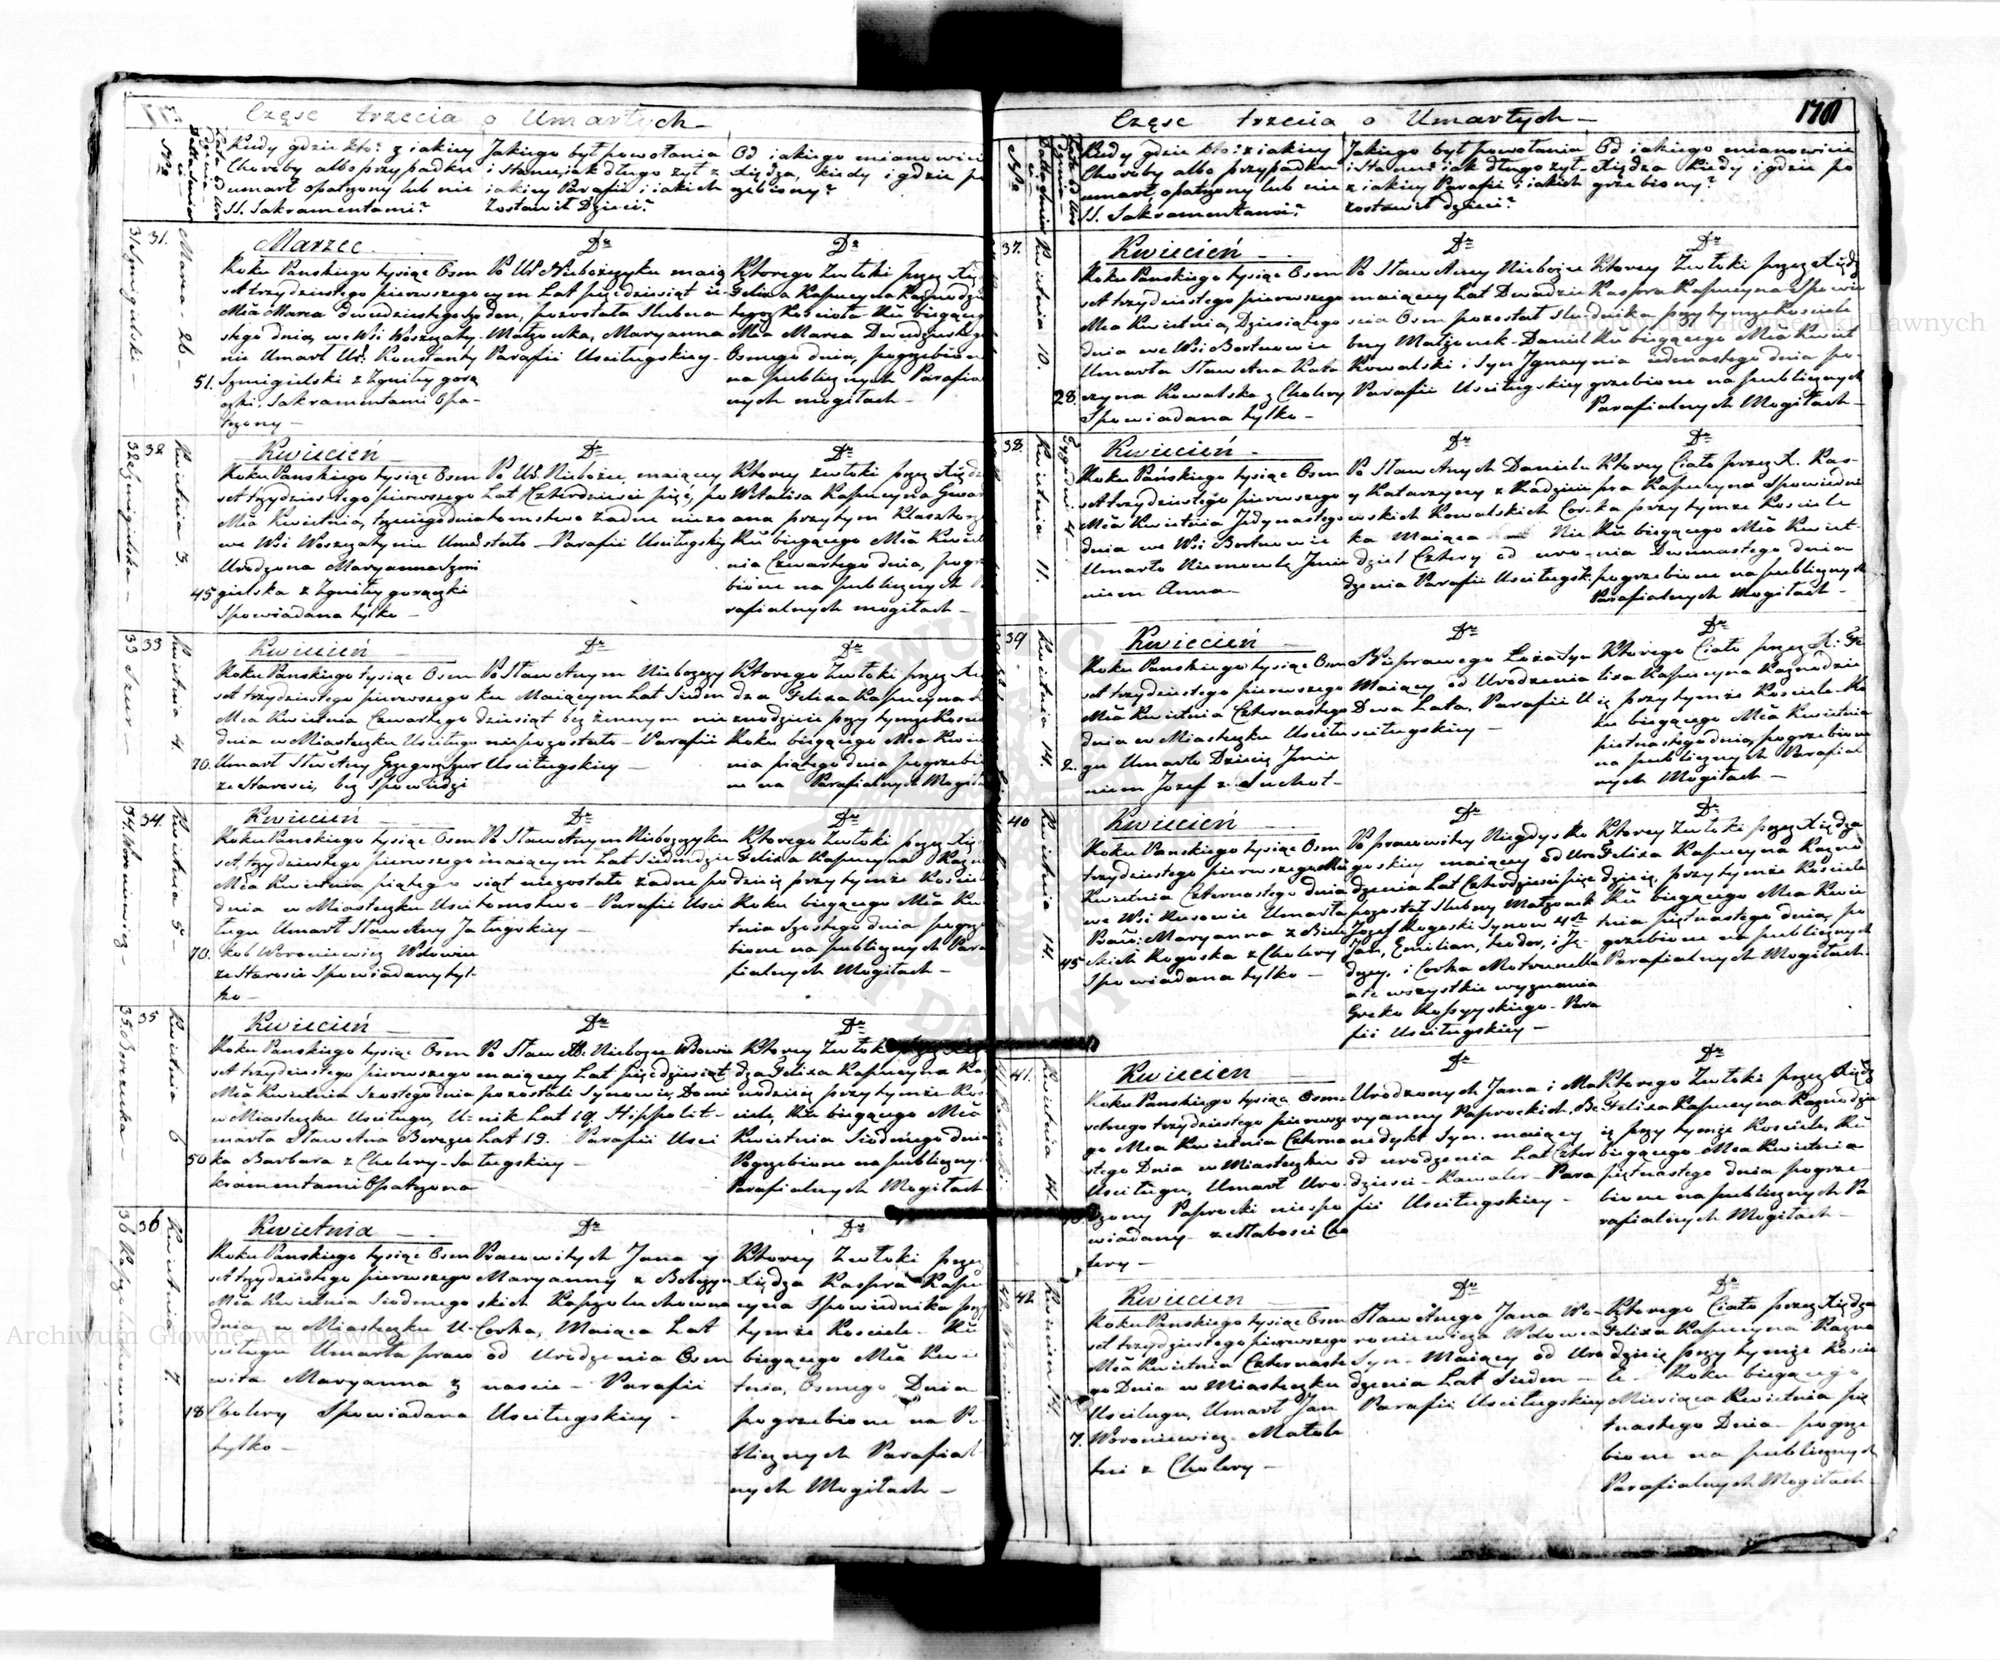 Częsc trzecia o Umarłych
Kiedy gdzie kto? z iakiey
Choroby albo przypadku
umarł opatrzony lub nie
SS. Sakramentami?
Jakiego był powołania
i Stanu, jak długo żył z
iakiey Parafii i iakich
zostawił Dzieci?
Od iakiego mianowicie
Xiędza, kiedy i gdzie po
grzebiony?
31 Szmigielski
31.
Marca 26
51.
Marzec
Roku Panskiego tysiąc Osm
set trzydziestego pierwszego
Mca Marca dwudziestego szó
stego dnia, we Wsi Woszczaty
nie Umarł Ur. Konstanty
Szmigielski z Zgniłey gorą
czki, Sakramentami Opa
trzony
Dto
Po Ur. Nieboszczyku maią
cym Lat pięcdziesiąt ie
den, pozostała Slubna
Małżonka, Maryanna
Parafii Usciługskiey
Dto
Ktorego Zwłoki przez Xię
Felixa Kapucyna Kaznodzie
tegoż Kościoła Ru biegącego
Mca Marca Dwudziestego
Osmego dnia, pogrzebione
na publicznych Parafial
nych mogiłach
32 Szmigielska
32
Kwietnia 3.
45
Kwiecień
Roku Panskiego tysiąc Osm
set trzydziestego pierwszego
Mca Kwietnia, trzeciego dnia
we Wsi Woszczatynie Umar
Urodzona Maryanna Szmi
gielska z Zgniłey gorączki
Spowiadana tylko
Dto
Po Ur. Niebożce, maiącey
Lat Czterdziesci pięć, po
tomstwo żadne niezo
stało Parafii Usciługskiey
Dto
Ktorey zwłoki przez Xiędza
Witalisa Kapucyna Gwardy
ana przytym Klasztorze
Ru biegącego Mca Kwiet
nia Czwartego dnia, pogrze
bione na publicznych Pa
rafialnych mogiłach
33 Szur
33
Kwietnia 4.
70.
Kwiecień
Roku Panskiego tysiąc Osm
set trzydziestego pierwszego
Mca Kwietnia Czwartego
dnia w Miasteczku Usciługu
Umarł Sławetny Grzegorz Szur
ze Starosci, bez Spowiedzi
Dto
Po Sławetnym Niebożczy
ku Maiącym Lat Siedm
dziesiąt bez żennym nie
nie pozostało Parafii
Usciługskiey
Dto
Ktorego Zwłoki przez Xię
dza Felixa Kapucyna Ka
znodzieię przy tymże Kościele
Roku biegącego Mca Kwiet
nia piątego dnia pogrzebio
ne na Parafialnych Mogiła
34. Woroniewicz
34.
Kwietnia 5
70.
Kwiecień
Roku Panskiego tysiąc Osm
set trzydziestego pierwszego
Mca Kwietnia piątego
dnia w Miasteczku Usci
ługu Umarł Sławetny Ja
kob Woroniewicz Wdowiec
ze Starosci Spowiadany tyl
ko
Dto
Po Sławetnym Niebożczyku
maiącym Lat Siedmdzie
siąt niezostało żadne po
tomstwo Parafii Usci
ługskiey
Dto
Ktorego Zwłoki przez Xię
Felixa Kapucyna Kazno
dzieię przy tymże Kościele
Roku biegącego Mca Kwie
tnia Szostego dnia pogrze
bione na publicznych Para
fialnych Mogiłach
35. Berezecka
35
Kwietnia 6
50
Kwiecień
Roku Panskiego tysiąc Osm
set trzydziestego pierwszego
Mca Kwietnia Szostego dnia
w Miasteczku Usciługu, U
marła Sławetna Berezec
ka Barbara z Cholery Sa
kramentami Opatrzona
Dto
Po Sławet. Niebożce Wdowie
maiącey Lat pięcdziesiąt
pozostali Synowie, Domi
nik Lat 19, Hippolit
Lat 19. Parafii Usci
ługskiey
Dto
Ktorey Zwłoki przez Xię
dza Felixa Kapucyna Kaz
nodzieię przytymże Kos
ciele, Ru biegącego Mca
Kwietnia Siodmego dnia
Pogrzebione na publicznych
Parafialnych Mogiłach
36
Kwietnia 7.
18
Kwietnia
Roku Panskiego tysiąc Osm
set trzydziestego pierwszego
Mca Kwietnia Siodmego
dnia w Miasteczku U
sciługu Umarła praco
wita Maryanna z
Cholery Spowiadana
tylko
Dto
Pracowitych Jana y
Maryanny z Bobczyn
skich
Corka, Maiąca Lat
od Urodzenia Osm
nascie Parafii
Usciługskiey
Dto
Ktorey Zwłoki przez
Xiędza Kaspra Kapu
cyna Spowiednika przy
tymże Kościele Ru
biegącego Mca Kwie
tnia, Osmego Dnia
pogrzebione na Pu
blicznych Parafial
nych Mogiłach
Częsc trzecia o Umarłych
170
Kiedy gdzie kto? z iakiey
Choroby albo przypadku
umarł, opatrzony lub nie
SS. Sakramentami?
Jakiego był powołania
i Stanu i jak długo żył
z iakiey Parafii i iakich
zostawił dzieci?
Od iakiego mianowicie
Xiędza Kiedy i gdzie po
grzebiony?
37.
Kwietnia 10.
28.
Kwiecień
Roku Panskiego tysiąc Osm
set trzydziestego pierwszego
Mca Kwietnia, Dziesiątego
dnia we Wsi Bortnowie
Umarła Sławetna Kata
rzyna Kowalska z Cholery
Spowiadana tylko
Dto
Po Sławetney Niebożce
maiącey Lat Dwadzie
scia Osm pozostał slu
bny Małżonek Daniel
Kowalski i Syn Jgnacy
Parafii Usciługskiey
Dto
Ktorey Zwłoki przez Xiędz
Kaspra Kapucyna Spowie
dnika przy tymże Kościele
Ru biegącego Mca Kwiet
nia iedenastego dnia po
grzebione na publicznych
Parafialnych Mogiłach
38.
Kwietnia 11.
Tygodni 4
Kwiecień
Roku Pańskiego tysiąc Osm
set trzydziestego pierwszego
Mca Kwietnia Jedynastego
dnia we Wsi Bortnowie
Umarło Niemowlę Jmie
niem Anna
Dto
Po Sławetnych Daniela
y Katarzyny z Radzie
wskich Kowalskich Cor
ka Maiąca Nie
dziel Cztery od uro
dzenia Parafii Usciługsk.
Dto
Ktorey Ciało przez X. Kas
pra Kapucyna Spowiedni
ka przy tymże Kościele
Ru biegącego Mca Kwiet
nia Dwunastego dnia
pogrzebione na publicznych
Parafialnych Mogiłach
39
Kwietnia 14.
2.
Kwiecień
Roku Panskiego tysiąc Osm
set trzydziestego pierwszego
Mca Kwietnia Czternastego
dnia w Miasteczku Usciłu
gu Umarło Dziecię Jmie
niem Jozef z Suchot
Dto
Nieprawego Łoża Syn
Maiący od Urodzenia
Dwa Lata, Parafii U
sciługskiey
Dto
Ktorego Ciało przez X. Fe
lixa Kapucyna Kaznodzie
ię przy tymże Kościele Ro
ku biegącego Mca Kwietnia
pietnastego dnia, pogrzebione
na publicznych Parafial
nych Mogiłach
40
Kwietnia 14.
45
Kwiecień
Roku Panskiego tysiąc Osm
trzydziestego pierwszego Mca
Kwietnia Czternastego dnia
we Wsi Rusowie Umarła
Maryanna z
Rogoska z Cholery
Spowiadana tylko
Dto
Po pracowitey Niegdys Ro
goskiey maiącey od Uro
dzenia Lat Czterdziesci pięc
pozostał Slubny Małżonek
Jozef Rogoski Synow 4ch
Jan, Emilian, Teodor, i Ję
drzey, i Corka
ale wszystkie wyznania
Greko Rossyyskiego Para
fii Usciługskiey
Dto
Ktorey Zwłoki przez Xiędza
Felixa Kapucyna Kazno
dzieię, przy tymże Kościele
Ru biegącego Mca Kwie
tnia piętnastego dnia, po
grzebione na publicznych
Parafialnych Mogiłach
41.
Kwietnia 14.
Kwiecien
Roku Panskiego tysiąc Osm
setnego trzydziestego pierwsze
go Mca Kwietnia Czterna
stego Dnia w Miasteczku
Usciługu, Umarł Uro
dzony Paprocki niespo
wiadany z słabosci Cho
lery
Dto
Urodzonych Jana i Ma
ryanny Paprockich, Be
nedykt Syn, maiący
od urodzenia Lat Czter
dziesci Kawaler Para
fii Usciługskiey
Dto
Ktorego Zwłoki przez Xiędz
Felixa Kapucyna Kaznodzie
ię przy tymże Kościele, Ru
biegącego Mca Kwietnia
piętnastego dnia pogrze
bione na publicznych Pa
rafialnych Mogiłach
42
7.
Kwiecien
Roku Panskiego tysiąc Osm
set trzydziestego pierwszego
Mca Kwietnia Czternaste
go Dnia w Miasteczku
Usciługu, Umarł Jan
Woroniewicz Małole
tni z Cholery
Dto
Sławetnego Jana Wo
roniewicza Wdowca
Syn Maiący od Uro
dzenia Lat Siedm
Parafii Usciługskiey
Dto
Ktorego Ciało przez Xiędza
Felixa Kapucyna Kazno
dzieię przy tymże Koście
le Roku biegącego
Miesiąca Kwietnia pię
tnastego Dnia pogrze
bione na publicznych
Parafialnych Mogiłach
Archiwum Główne Akt Dawnych
Archiwum Główne Akt Dawnych